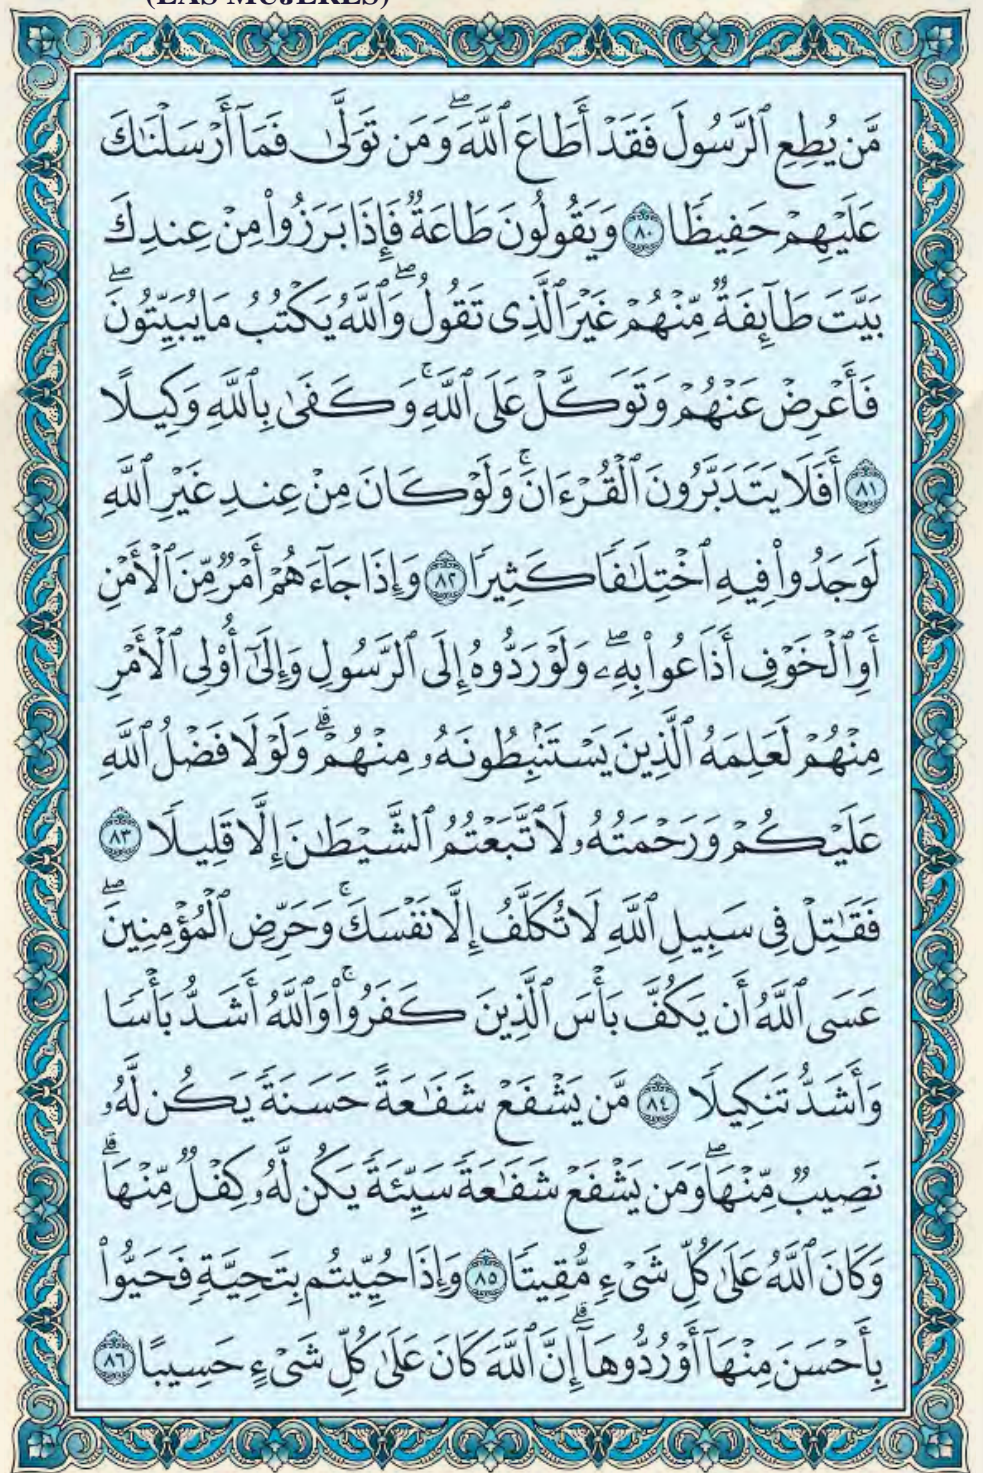 (LAS MUJERES)
مَّن يُطِعِ ٱلرَّسُولَ فَقَدْ أَطَاعَ ٱللَّهَ ۖ وَمَن تَوَلَّىٰ فَمَآ أَرْسَلْنَٰكَ
عَلَيْهِمْ حَفِيظًا ٨٠ وَيَقُولُونَ طَاعَةٌ فَإِذَا بَرَزُوا۟ مِنْ عِندِكَ
بَيَّتَ طَآئِفَةٌ مِّنْهُمْ غَيْرَ ٱلَّذِى تَقُولُ ۖ وَٱللَّهُ يَكْتُبُ مَا يُبَيِّتُونَ ۖ
فَأَعْرِضْ عَنْهُمْ وَتَوَكَّلْ عَلَى ٱللَّهِ ۚ وَكَفَىٰ بِٱللَّهِ وَكِيلًا
٨١ أَفَلَا يَتَدَبَّرُونَ ٱلْقُرْءَانَ ۚ وَلَوْ كَانَ مِنْ عِندِ غَيْرِ ٱللَّهِ
لَوَجَدُوا۟ فِيهِ ٱخْتِلَٰفًا كَثِيرًا ٨٢ وَإِذَا جَآءَهُمْ أَمْرٌ مِّنَ ٱلْأَمْنِ
أَوِ ٱلْخَوْفِ أَذَاعُوا۟ بِهِۦ ۖ وَلَوْ رَدُّوهُ إِلَى ٱلرَّسُولِ وَإِلَىٰٓ أُو۟لِى ٱلْأَمْرِ
مِنْهُمْ لَعَلِمَهُ ٱلَّذِينَ يَسْتَنۢبِطُونَهُۥ مِنْهُمْ ۗ وَلَوْلَا فَضْلُ ٱللَّهِ
عَلَيْكُمْ وَرَحْمَتُهُۥ لَٱتَّبَعْتُمُ ٱلشَّيْطَٰنَ إِلَّا قَلِيلًا ٨٣
فَقَٰتِلْ فِى سَبِيلِ ٱللَّهِ لَا تُكَلَّفُ إِلَّا نَفْسَكَ ۚ وَحَرِّضِ ٱلْمُؤْمِنِينَ ۖ
عَسَى ٱللَّهُ أَن يَكُفَّ بَأْسَ ٱلَّذِينَ كَفَرُوا۟ ۚ وَٱللَّهُ أَشَدُّ بَأْسًا
وَأَشَدُّ تَنكِيلًا ٨٤ مَّن يَشْفَعْ شَفَٰعَةً حَسَنَةً يَكُن لَّهُۥ
نَصِيبٌ مِّنْهَا ۖ وَمَن يَشْفَعْ شَفَٰعَةً سَيِّئَةً يَكُن لَّهُۥ كِفْلٌ مِّنْهَا ۗ
وَكَانَ ٱللَّهُ عَلَىٰ كُلِّ شَىْءٍ مُّقِيتًا ٨٥ وَإِذَا حُيِّيتُم بِتَحِيَّةٍ فَحَيُّوا۟
بِأَحْسَنَ مِنْهَآ أَوْ رُدُّوهَآ ۗ إِنَّ ٱللَّهَ كَانَ عَلَىٰ كُلِّ شَىْءٍ حَسِيبًا ٨٦